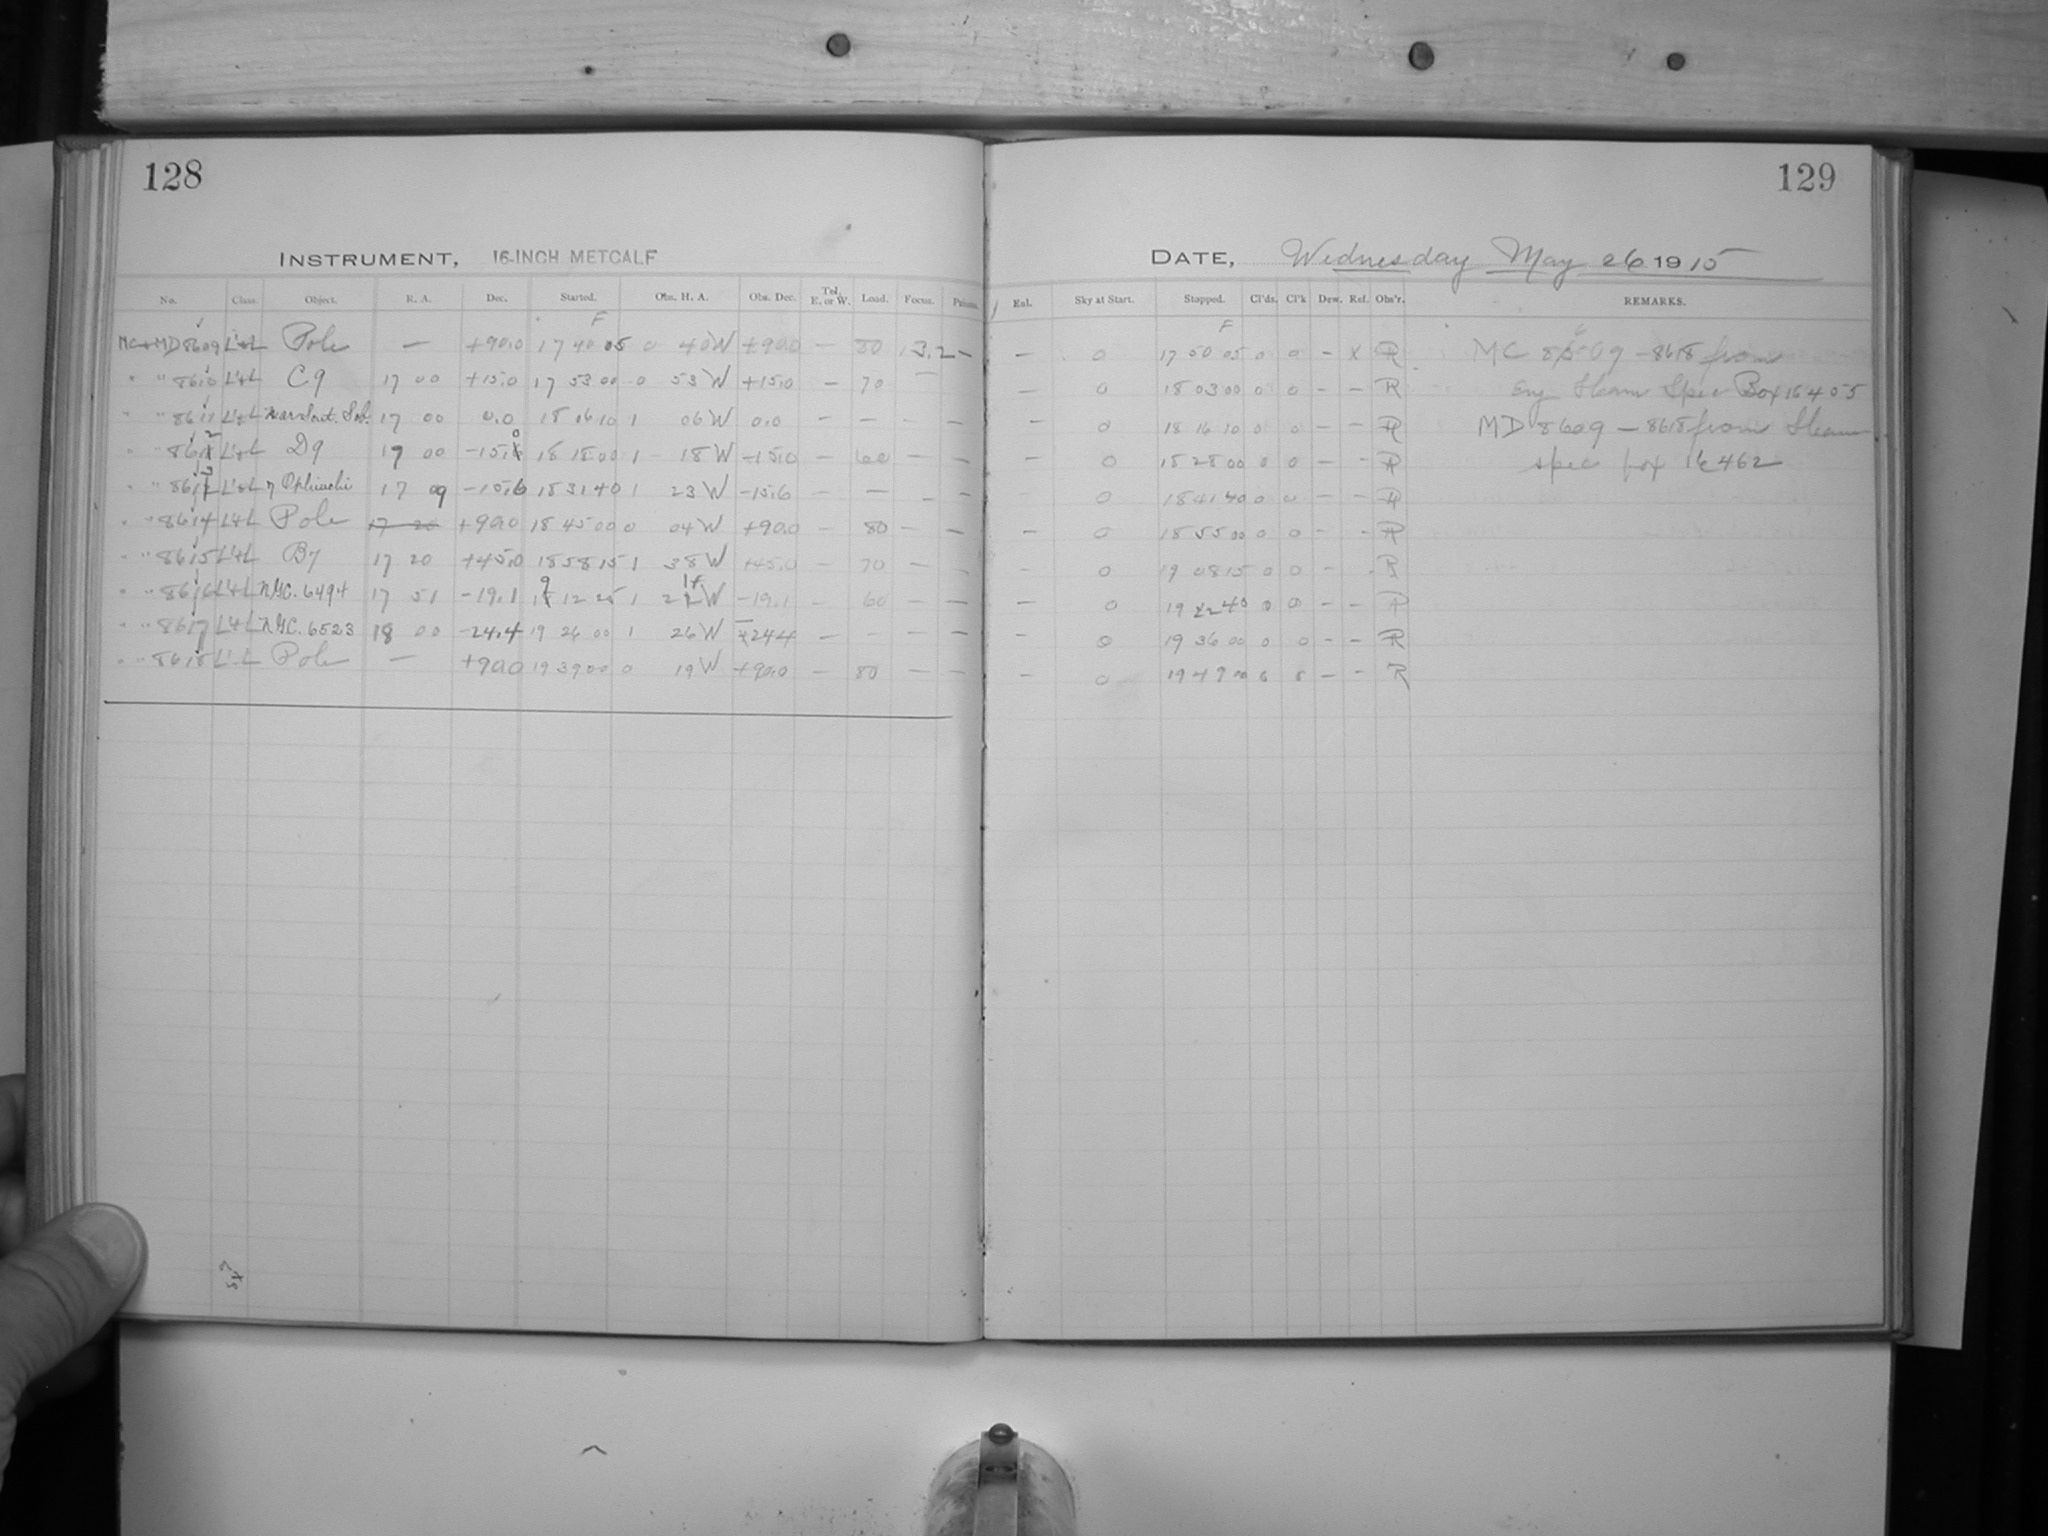 128
129
INSTRUMENT, 16-INCH METCALF
DATE, Wednesday May 26 1915
No. Class. Object. R. A. Dec. Started. Obs. H. A. Obs. Dec. Tel. E. or W. Load. Focus.
Enl. Sky at Start. Stopped. Cl'ds. Cl'k Dew. Ref. Obs'r. REMARKS.
F
F
MC+MD 8609 L'+L Pole — +90.0 17 40 05 0 40W +90.0 — 80 13.2 — — 0 17 50 05 0 0 — X R MC 8609 — 8618 from
" " 8610 L'+L C9 17 00 +15.0 17 53 00 0 53 W +15.0 — 70 — 0 18 03 00 0 0 — — R Spec Box 16405
" " 8611 L'+L 17 00 0.0 18 06 10 1 06 W 0.0 — — — — — 0 18 16 10 0 0 — — R MD 8609 — 8618 from
" " 8612 L'+L D9 17 00 -15.0 18 18 00 1 18 W -15.0 — 60 — — — 0 18 28 00 0 0 — — R spec box 16462
" " 8613 L'+L η Ophiuchi 17 09 -15.6 18 31 40 1 23 W -15.6 — — — — — 0 18 41 40 0 0 — — R
" " 8614 L'+L Pole 17 20 +90.0 18 45 00 0 04 W +90.0 — 80 — — — 0 18 55 00 0 0 — — R
" " 8615 L'+L B7 17 20 +45.0 18 58 15 1 38 W +45.0 — 70 — — — 0 19 08 15 0 0 — — R
" " 8616 L'+L N.G.C. 6494 17 51 -19.1 19 12 25 1 W -19.1 — 60 — — — 0 19 22 40 0 0 — — R
" " 8617 L'+L N.G.C. 6523 18 00 -24.4 19 26 00 1 26 W -24.4 — — — — — 0 19 36 00 0 0 — — R
" " 8618 L'+L Pole — +90.0 19 39 00 0 19 W +90.0 — 80 — — — 0 19 49 00 0 0 — — R